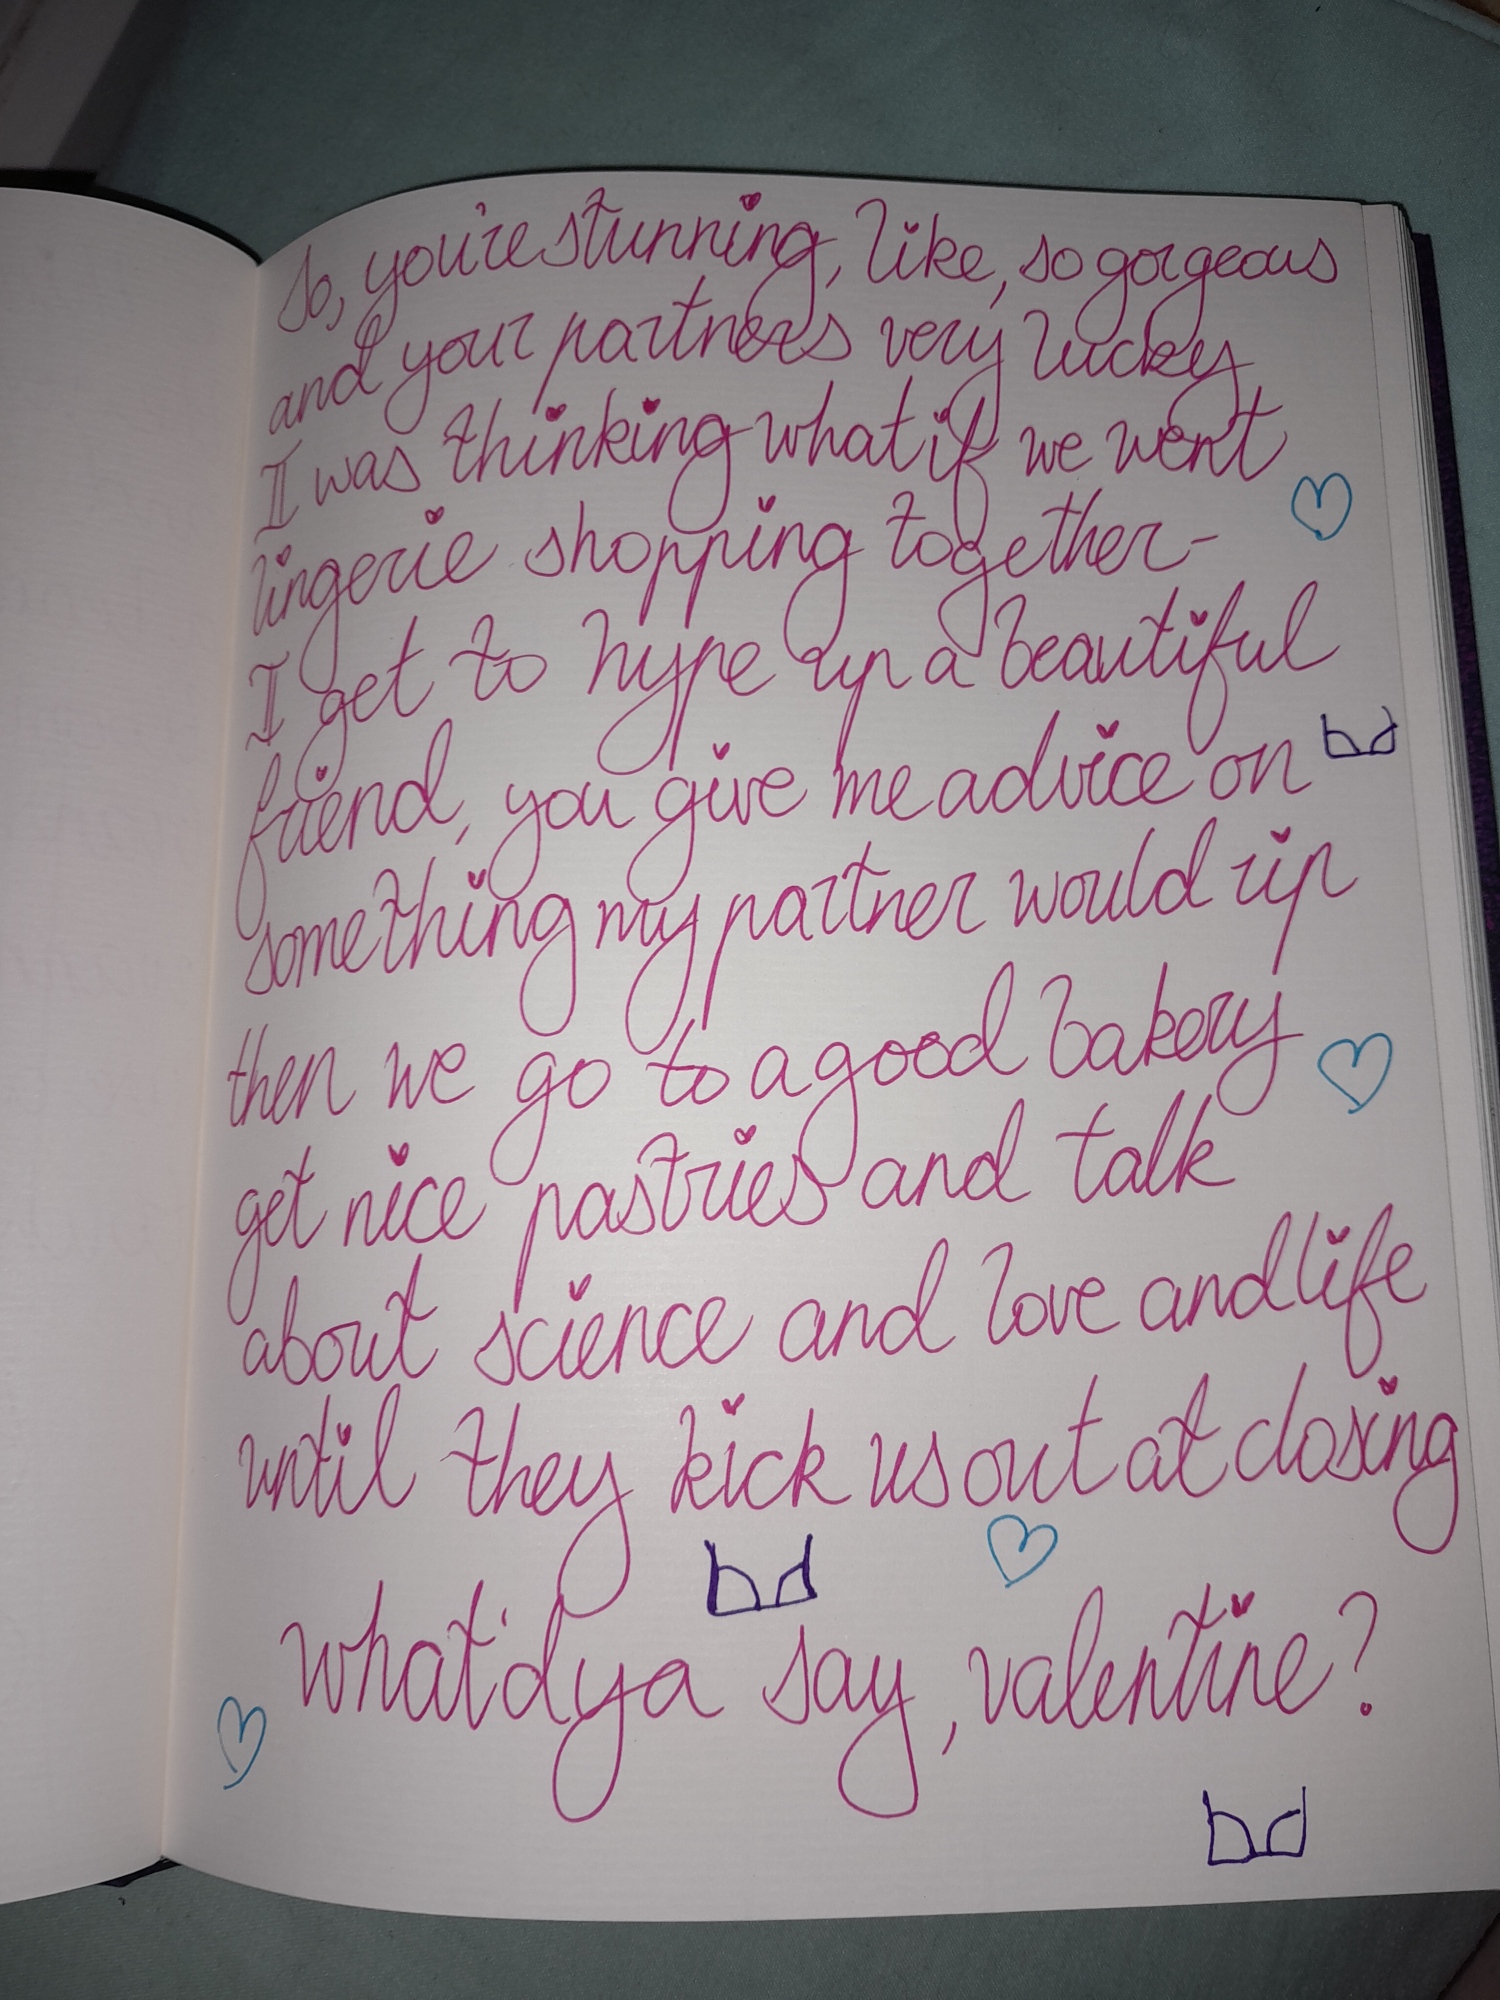 So, you're stunning, like, so gorgeous
and your partners very lucky
I was thinking what if we went
lingerie shopping together-
I get to hype up a beautiful
friend, you give me advice on
something my partner would rip
then we go to a good bakery
get nice pastries and talk
about science and love and life
until they kick us out at closing
what'dya say, valentine?